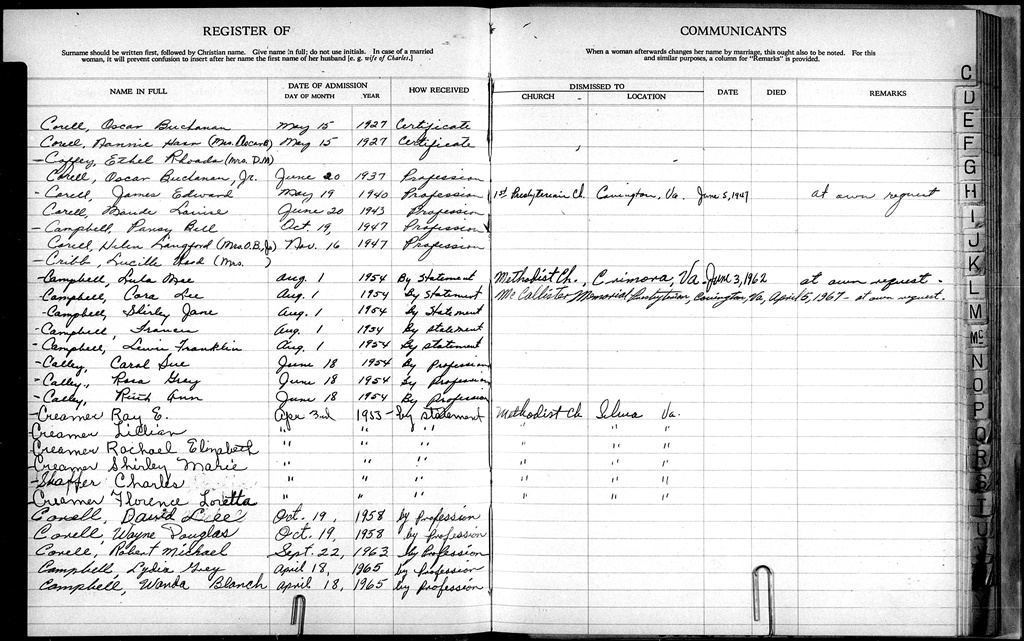 REGISTER OF
Surname should be written first, followed by Christian name. Give name in full; do not use initials. In case of a married
woman, it will prevent confusion to insert after her name the first name of her husband [e. g. wife of Charles.]
COMMUNICANTS
When a woman afterwards changes her name by marriage, this ought also to be noted. For this
and similar purposes, a column for "Remarks" is provided.
NAME IN FULL DATE OF ADMISSION DAY OF MONTH YEAR HOW RECEIVED DISMISSED TO CHURCH LOCATION DATE DIED REMARKS
Corell, Oscar Buchanan May 15 1927 Certificate
Corell, Nannie (Mrs. Oscar B) May 15 1927 Certificate
- Coffey, Ethel Rhoads (Mrs. D.M)
Corell, Oscar Buchanan, Jr. June 20 1937 Profession
- Corell, James Edward May 19 1940 Profession 1st Presbyterian Ch. Covington, Va. June 5, 1947 at own request
Corell, Maude Louise June 20 1943 Profession
- Campbell, Pansy Bell Oct. 19, 1947 Profession
Corell, Helen Langford (Mrs O.B. Jr) Nov. 16 1947 Profession
- Cribb, Lucille (Mrs. )
- Campbell, Lula Mae Aug. 1 1954 By Statement Methodist Ch., Crimora, Va. June 3, 1962 at own request.
- Campbell, Cora Lee Aug. 1 1954 By Statement McCallister Memorial Presbyterian Covington, Va, April 5, 1967 - at own request.
- Campbell, Shirley Jane Aug. 1 1954 By Statement
- Campbell, Francis Aug. 1 1954 By statement
- Campbell, Lewis Franklin Aug. 1 1954 By statement
- Calley, Carol Sue June 18 1954 By Profession
- Calley, Rosa Grey June 18 1954 By Profession
- Calley, Ruth Ann June 18 1954 By Profession
- Creamer Ray E. Apr 3rd 1953 - by statement Methodist Ch Va.
- Creamer Lillian " " " " " "
- Creamer Rachael Elizabeth " " " " " "
- Creamer Shirley Marie " " " " " "
- Shaffer Charles " " " " " "
- Creamer Florence Loretta " " " " " "
Corell, David Lee Oct. 19, 1958 by Profession
Corell, Wayne Douglas Oct. 19, 1958 by Profession
Corell, Robert Michael Sept. 22, 1963 by Profession
Campbell, Lydia Grey April 18, 1965 by Profession
Campbell, Wanda Blanch April 18, 1965 by Profession
C
D
E
F
G
H
I
J
K
L
M
Mc
N
O
P
Q
R
S
T
U